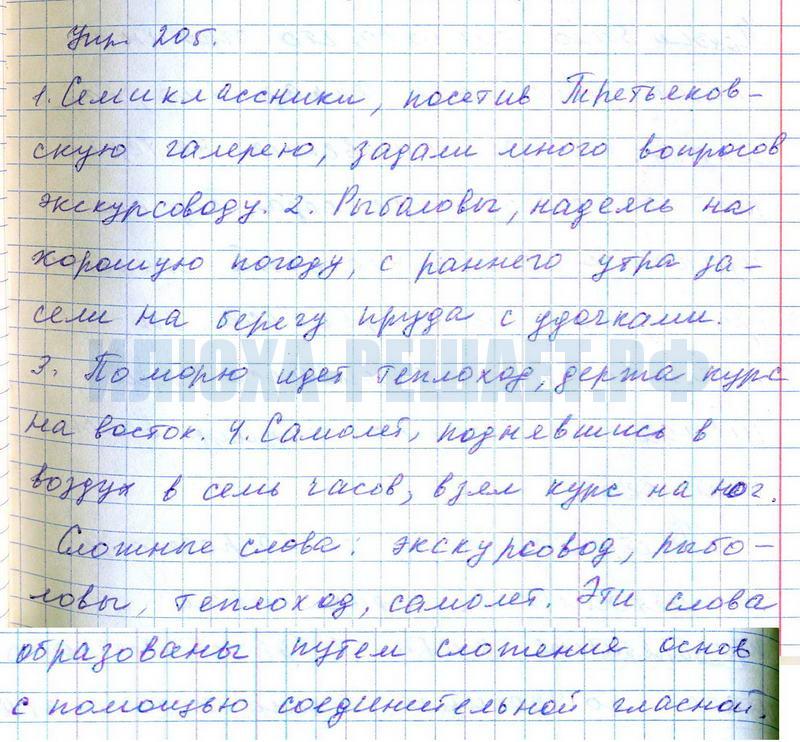 Упр 205.
1. Семиклассники, посетив Третьяков-
скую галерею, задали много вопросов
экскурсоводу. 2. Рыболовы, надеясь на
хорошую погоду, с раннего утра за-
сели на берегу пруда с удочками.
ИЛЮХА-РЕШАЕТ.РФ
3. По морю идет теплоход, держа курс
на восток. 4. Самолет, поднявшись в
воздух в семь часов, взял курс на юг.
Сложные слова: экскурсовод, рыбо-
ловы, теплоход, самолет. Эти слова
образованы путем сложения основ
с помощью соединительной гласной.